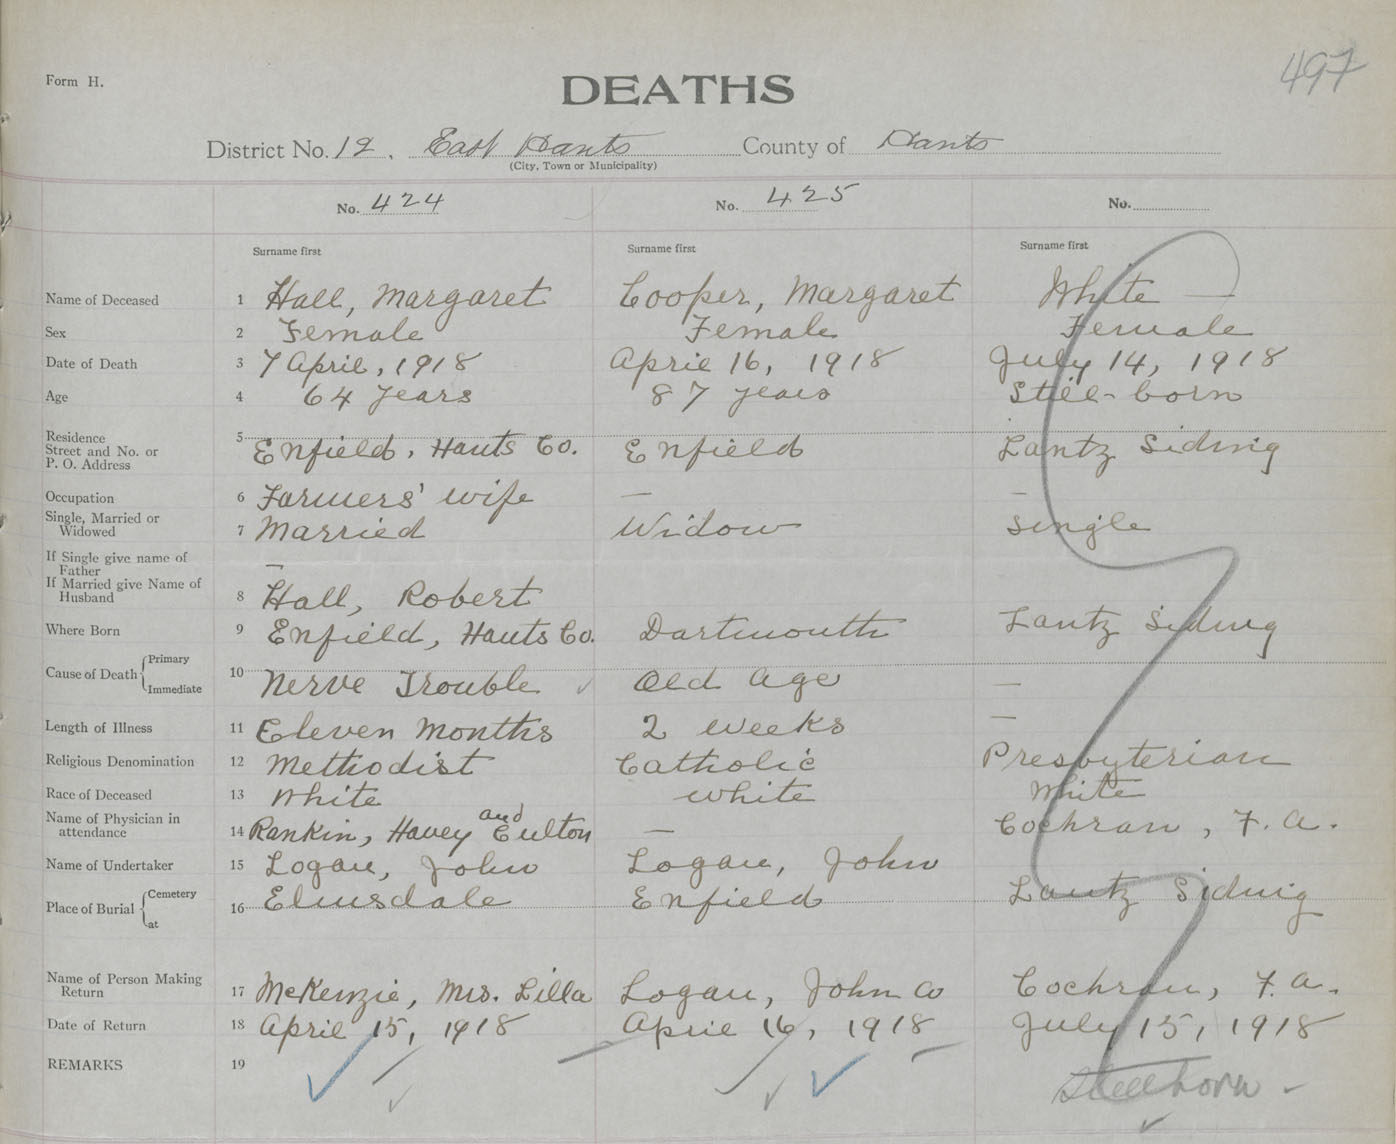 497
Form H.
DEATHS
District No. 12. East Hants County of Hants
(City, Town or Municipality)
No. 424 No. 425 No.
Surname first Surname first Surname first
Name of Deceased 1 Hall, Margaret Cooper, Margaret White —
Sex 2 Female Female Female
Date of Death 3 7 April, 1918 April 16, 1918 July 14, 1918
Age 4 64 years 87 years Still-born
Residence
Street and No. or
P. O. Address
5 Enfield, Hants Co. Enfield Lantz Siding
Occupation 6 Farmers' wife — —
Single, Married or
Widowed 7 Married Widow Single
If Single give name of
Father —
If Married give Name of
Husband 8 Hall, Robert
Where Born 9 Enfield, Hants Co. Dartmouth Lantz Siding
Cause of Death { Primary
Immediate
10 Nerve Trouble Old Age —
Length of Illness 11 Eleven Months 2 weeks —
Religious Denomination 12 Methodist Catholic Presbyterian
Race of Deceased 13 White White White
Name of Physician in
attendance 14 Rankin, Havey and Culton — Cochran, F. A.
Name of Undertaker 15 Logan, John Logan, John
Place of Burial { Cemetery
at
16 Elmsdale Enfield Lantz Siding
Name of Person Making
Return 17 McKenzie, Mrs. Lilla Logan, John Co Cochran, F. A.
Date of Return 18 April 15, 1918 April 16, 1918 July 15, 1918
REMARKS 19 Stillborn